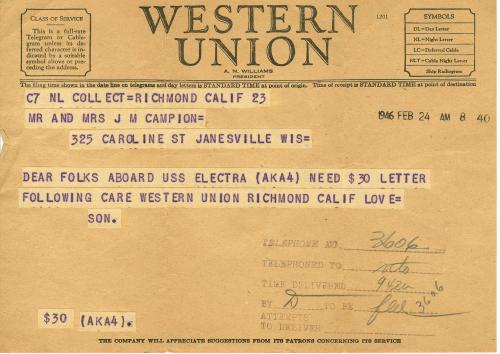 CLASS OF SERVICE
This is a full-rate
Telegram or Cable-
gram unless its de-
ferred character is in-
dicated by a suitable
symbol above or pre-
ceding the address.
WESTERN
UNION
1201
A. N. WILLIAMS
PRESIDENT
SYMBOLS
DL=Day Letter
NL=Night Letter
LC=Deferred Cable
NLT=Cable Night Letter
Ship Radiogram
The filing time shown in the date line on telegrams and day letters is STANDARD TIME at point of origin. Time of receipt is STANDARD TIME at point of destination
C7 NL COLLECT=RICHMOND CALIF 23
MR AND MRS J M CAMPION=
1946 FEB 24 AM 8 40
325 CAROLINE ST JANESVILLE WIS=
DEAR FOLKS ABOARD USS ELECTRA (AKA4) NEED $30 LETTER
FOLLOWING CARE WESTERN UNION RICHMOND CALIF LOVE=
SON.
TELEPHONE NO 3606
TELEPHONED TO
TIME DELIVERED 942a
BY D TO BE
3606
ATTEMPTS
TO DELIVER
$30 (AKA4).
THE COMPANY WILL APPRECIATE SUGGESTIONS FROM ITS PATRONS CONCERNING ITS SERVICE